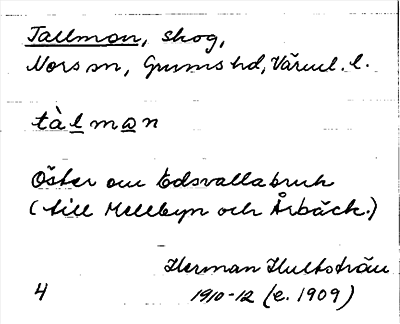 Tallmon, skog,
Nors sn, Grums hd, Värml. l.
tàlmɷn
Öster om Edsvallabruk
(till Mellbyn och Årbäck.)
Herman Hultsträu
4 1910-12 (e. 1909)